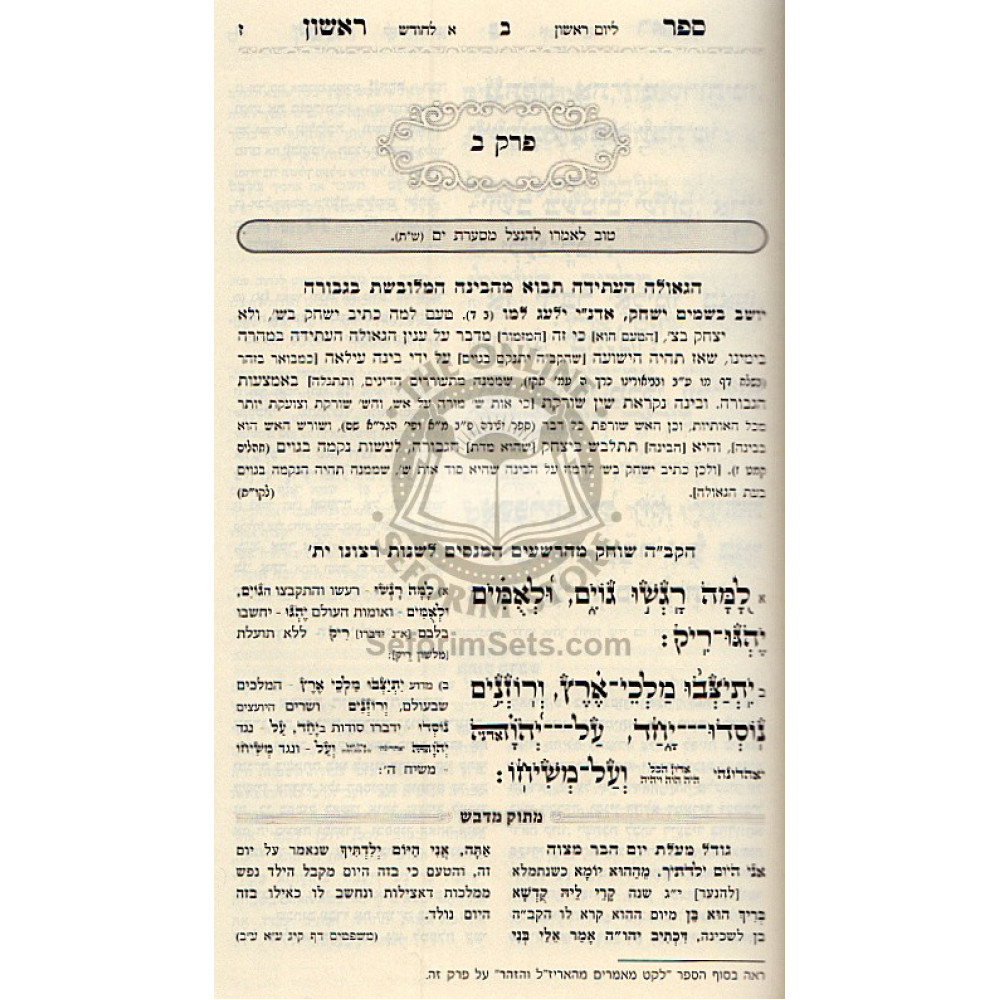 ספר ליום ראשון ב א לחודש ראשון ז
פרק ב
טוב לאמרו להנצל מסערת ים (ש״ת).
הגאולה העתידה תבוא מהבינה המלובשת בגבורה
יושב בשמים ישחק, אדנ״י ילעג למו (ב ד). טעם למה כתיב ישחק בש׳, ולא
יצחק בצ׳, [הטעם הוא] כי זה [המזמור] מדבר על ענין הגאולה העתידה במהרה
בימינו, שאז תהיה הישועה [שהקב״ה יתנקם בגוים] על ידי בינה עילאה [כמבואר בזהר
באמצעות
הגבורה. ובינה נקראת שין שורקת [כי אות ש׳ מורה על אש, והש׳ שורקת וצועקת יותר
מכל האותיות, וכן האש שורפת כל דבר (ספר יצירה פ״ב מ״א ופי׳ הגר״א שם), ושורש האש הוא
בבינה], והיא [הבינה] תתלבש ביצחק [שהוא מדת] הגבורה, לעשות נקמה בגוים (תהלים
קמט ז). [ולכן כתיב ישחק בש׳ לרמז על הבינה שהיא סוד אות ש׳, שממנה תהיה הנקמה בגוים
בעת הגאולה]. (לקו״ת)
הקב״ה שוחק מהרשעים המנסים לשנות רצונו ית׳
א לָמָּה רָגְשׁוּ גוֹיִם, וּלְאֻמִּים
יֶהְגּוּ־רִיק:
ב יִתְיַצְּבוּ מַלְכֵי־אֶרֶץ, וְרוֹזְנִים
נוֹסְדוּ־יָחַד, עַל־יְהֹוָה
יאהדונהי אדון הכל היה הוה ויהיה וְעַל־מְשִׁיחוֹ:
א) לָמָּה רָגְשׁוּ - רעשו והתקבצו הגוֹיִם,
וּלְאֻמִּים - ואומות העולם יֶהְגּוּ - יחשבו
בלבם [א״נ ידברו] רִיק ללא תועלת
[מלשון רֵיק]:
ב) מדוע יִתְיַצְּבוּ מַלְכֵי אֶרֶץ - המלכים
שבעולם, וְרוֹזְנִים ושרים היועצים
נוֹסְדוּ - ידברו סודות ביָחַד, עַל - נגד
יְהֹוָה וְעַל - ונגד מְשִׁיחוֹ
- משיח ה׳:
מתוק מדבש
גודל מעלת יום הבר מצוה
אני היום ילדתיך, מֵהַהוּא יוֹמָא כשנתמלא
[להנער] י״ג שנה קָרֵי לֵיהּ קֻדְשָׁא
בְּרִיךְ הוּא בֵּן מיום ההוא קרא לו הקב״ה
בן לשכינה, דִּכְתִיב יהו״ה אָמַר אֵלַי בְּנִי
אַתָּה, אֲנִי הַיּוֹם יְלִדְתִּיךָ שנאמר על יום
זה, והטעם כי בזה היום מקבל הילד נפש
ממלכות דאצילות ונחשב לו כאילו בזה
היום נולד.
(משפטים דף קיג ע״א ע״ב)
ראה בסוף הספר ״לקט מאמרים מהאריז״ל והזהר״ על פרק זה.
THE ONLINE
SEFORIM STORE
SeforimSets.com